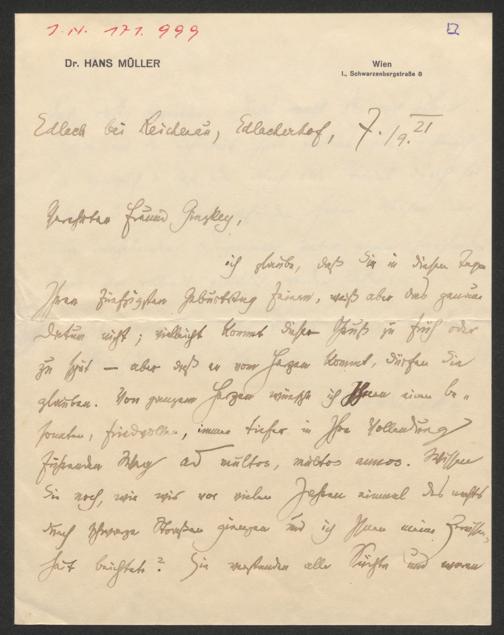 I.N. 171.999
Dr. HANS MÜLLER
Wien
I., Schwarzenbergstraße 8
Edlach bei Reichenau, Edlacherhof, 7./9. 21
Verehrter Freund Ginzkey,
ich glaube, daß Sie in diesen Tagen
Ihren fünfzigsten Geburtstag feiern, weiß aber das genaue
Datum nicht; vielleicht kommt dieser Gruß zu früh oder
zu spät – aber daß er vom Herzen kommt, dürfen Sie
glauben. Von ganzem Herzen wünsche ich Ihnen einen be„
sonnten, friedvollen, immer tiefer in Ihre Vollendung
führenden Weg ad multos, multos annos. Wissen
Sie noch, wie wir vor vielen Jahren einmal des nachts
durch schwarze Straßen giengen und ich Ihnen meine
hat beichtete? Sie verstanden alle und waren